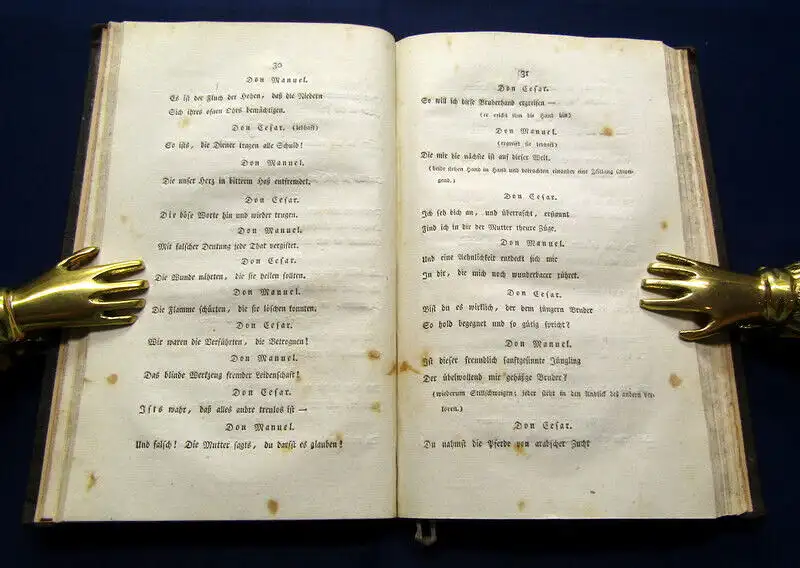 30
Don Manuel.
Es ist der Fluch der Hohen, daß die Niedern
Sich ihres ofnen Ohrs bemächtigen.
Don Cesar. (lebhaft)
So ists, die Diener tragen alle Schuld!
Don Manuel.
Die unser Herz in bitterm Haß entfremdet.
Don Cesar.
Die böse Worte hin und wieder trugen.
Don Manuel.
Mit falscher Deutung jede That vergiftet.
Don Cesar.
Die Wunde nährten, die sie heilen sollten.
Don Manuel.
Die Flamme schürten, die sie löschen konnten.
Don Cesar.
Wir waren die Verführten, die Betrognen!
Don Manuel.
Das blinde Werkzeug fremder Leidenschaft!
Don Cesar.
Ists wahr, daß alles andre treulos ist —
Don Manuel.
Und falsch! Die Mutter sagts, du darfst es glauben!
31
Don Cesar.
So will ich diese Bruderhand ergreifen —
(er reicht ihm die Hand hin)
Don Manuel.
(ergreift sie lebhaft)
Die mir die nächste ist auf dieser Welt.
(beide stehen Hand in Hand und betrachten einander eine Zeitlang schwei-
gend.)
Don Cesar.
Ich seh dich an, und überrascht, erstaunt
Find ich in dir der Mutter theure Züge.
Don Manuel.
Und eine Aehnlichkeit entdeckt sich mir
In dir, die mich noch wunderbarer rühret.
Don Cesar.
Bist du es wirklich, der dem jüngern Bruder
So hold begegnet und so gütig spricht?
Don Manuel.
Ist dieser freundlich sanftgesinnte Jüngling
Der übelwollend mir gehäßge Bruder?
(wiederum Stillschweigen; jeder steht in den Anblick des andern ver-
loren.)
Don Cesar.
Du nahmst die Pferde von arabscher Zucht